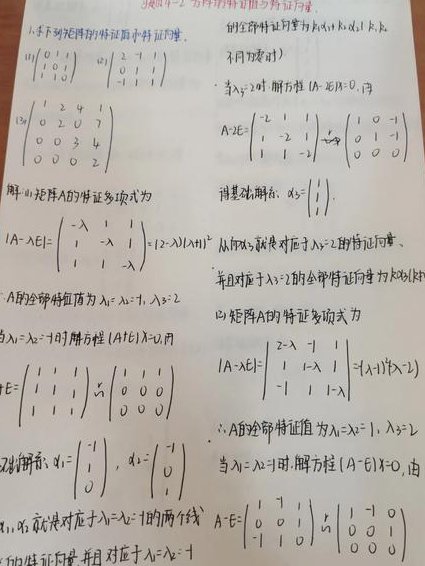 习题4-2 方阵的特征值与特征向量
1.求下列矩阵的特征值和特征向量.
(1) (0 1 1
1 0 1
1 1 0) (2) (2 -1 1
0 1 1
-1 1 1)
(3) (1 2 4 1
0 2 0 7
0 0 3 4
0 0 0 2)
解:(1)矩阵A的特征多项式为
|A-λE|= (-λ 1 1
1 -λ 1
1 1 -λ) =(2-λ)(λ+1)²
∴A的全部特征值为λ₁=λ₂=-1, λ₃=2
当λ₁=λ₂=-1时解方程(A+E)X=0,由
+E= (1 1 1
1 1 1
1 1 1) r~ (1 1 1
0 0 0
0 0 0)
础解系 α₁= (-1
1
0) , α₂= (-1
0
1)
α₁,α₂就是对应于λ₁=λ₂=-1的两个线
的特征向量并且对应于λ₁=λ₂=-1
的全部特征向量为k₁α₁+k₂α₂(k₁,k₂
不同为零时)
当λ₃=2时,解方程(A-2E)X=0,由
A-2E= (-2 1 1
1 -2 1
1 1 -2) r~ (1 0 -1
0 1 -1
0 0 0)
得基础解系 α₃= (1
1
1).
从而α₃就是对应于λ₃=2的特征向量、
并且对应于λ₃=2的全部特征向量为kα₃(k≠
(2)矩阵A的特征多项式为
|A-λE|= |2-λ -1 1
0 1-λ 1
-1 1 1-λ| =-(λ-1)²(λ-2)
∴A的全部特征值为λ₁=λ₂=1, λ₃=2
当λ₁=λ₂=1时,解方程(A-E)X=0,由
A-E= (1 -1 1
0 0 1
-1 1 0) r~ (1 -1 0
0 0 1
0 0 0)